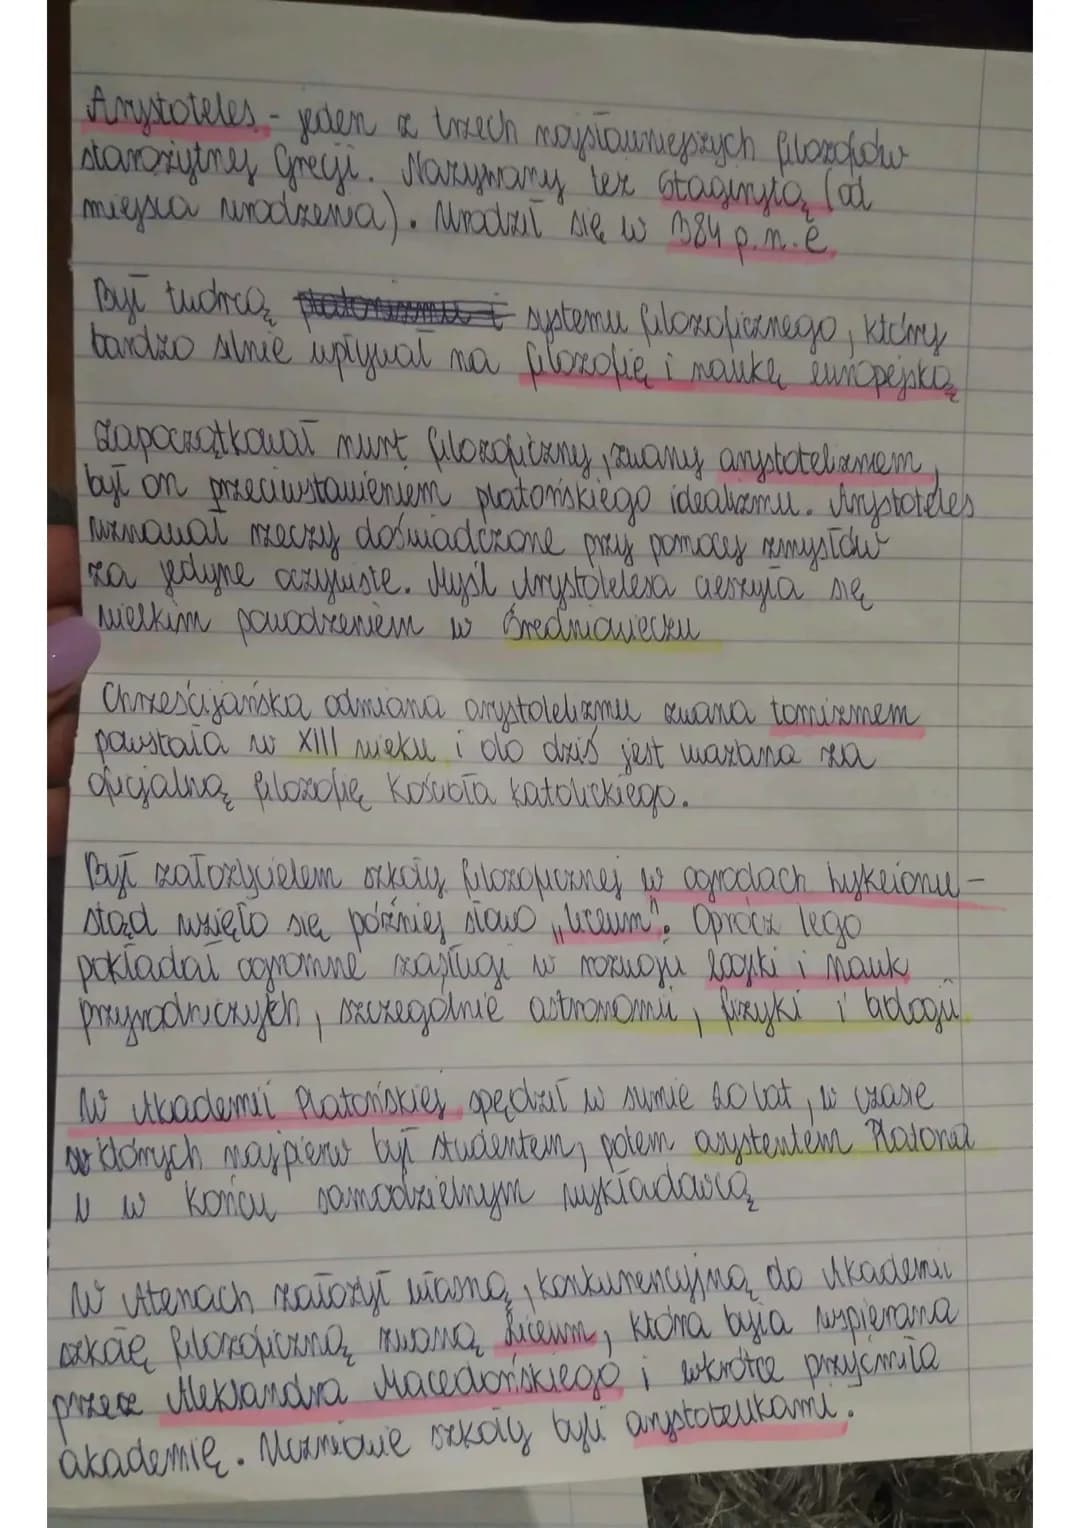 Arystoteles - jeden z trzech najsławniejszych filozofów
starożytnej Grecji. Nazywany też Stagirytą (od
miejsca urodzenia). Urodził się w 384 p.n.e.
Był twórcą platonizmu i systemu filozoficznego, który
bardzo silnie wpływał na filozofię i naukę europejską
Zapoczątkował nurt filozoficzny, zwany arystotelizmem,
był on przeciwstawieniem platońskiego idealizmu. Arystoteles
uznawał rzeczy doświadczone przy pomocy zmysłów
za jedyne oczywiste. Myśl Arystotelesa cieszyła się
wielkim powodzeniem w Średniowieczu
Chrześcijańska odmiana arystotelizmu zwana tomizmem
powstała w XIII wieku i do dziś jest uważana za
oficjalną filozofię Kościoła katolickiego.
Był założycielem szkoły filozoficznej w ogrodach Lykeionu -
stąd wzięło się później słowo „liceum". Oprócz tego
pokładał ogromne zasługi w rozwoju logiki i nauk
przyrodniczych, szczególnie astronomii, fizyki i biologii.
W Akademii Platońskiej spędził w sumie 20 lat, w czasie
których najpierw był studentem, potem asystentem Platona
w końcu samodzielnym wykładawcą
W Atenach założył własną, konkurencyjną do Akademii
szkołę filozoficzną zwaną Liceum, która była wspierana
przez Aleksandra Macedońskiego i wkrótce przyćmiła
akademię. Uczniowie szkoły byli arystotelikami.